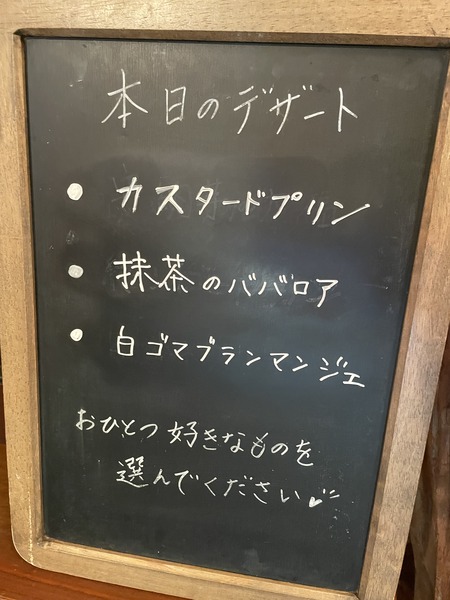 本日のデザート
• カスタードプリン
• 抹茶のババロア
• 白ゴマブランマンジェ
おひとつ 好きなものを
選んでください